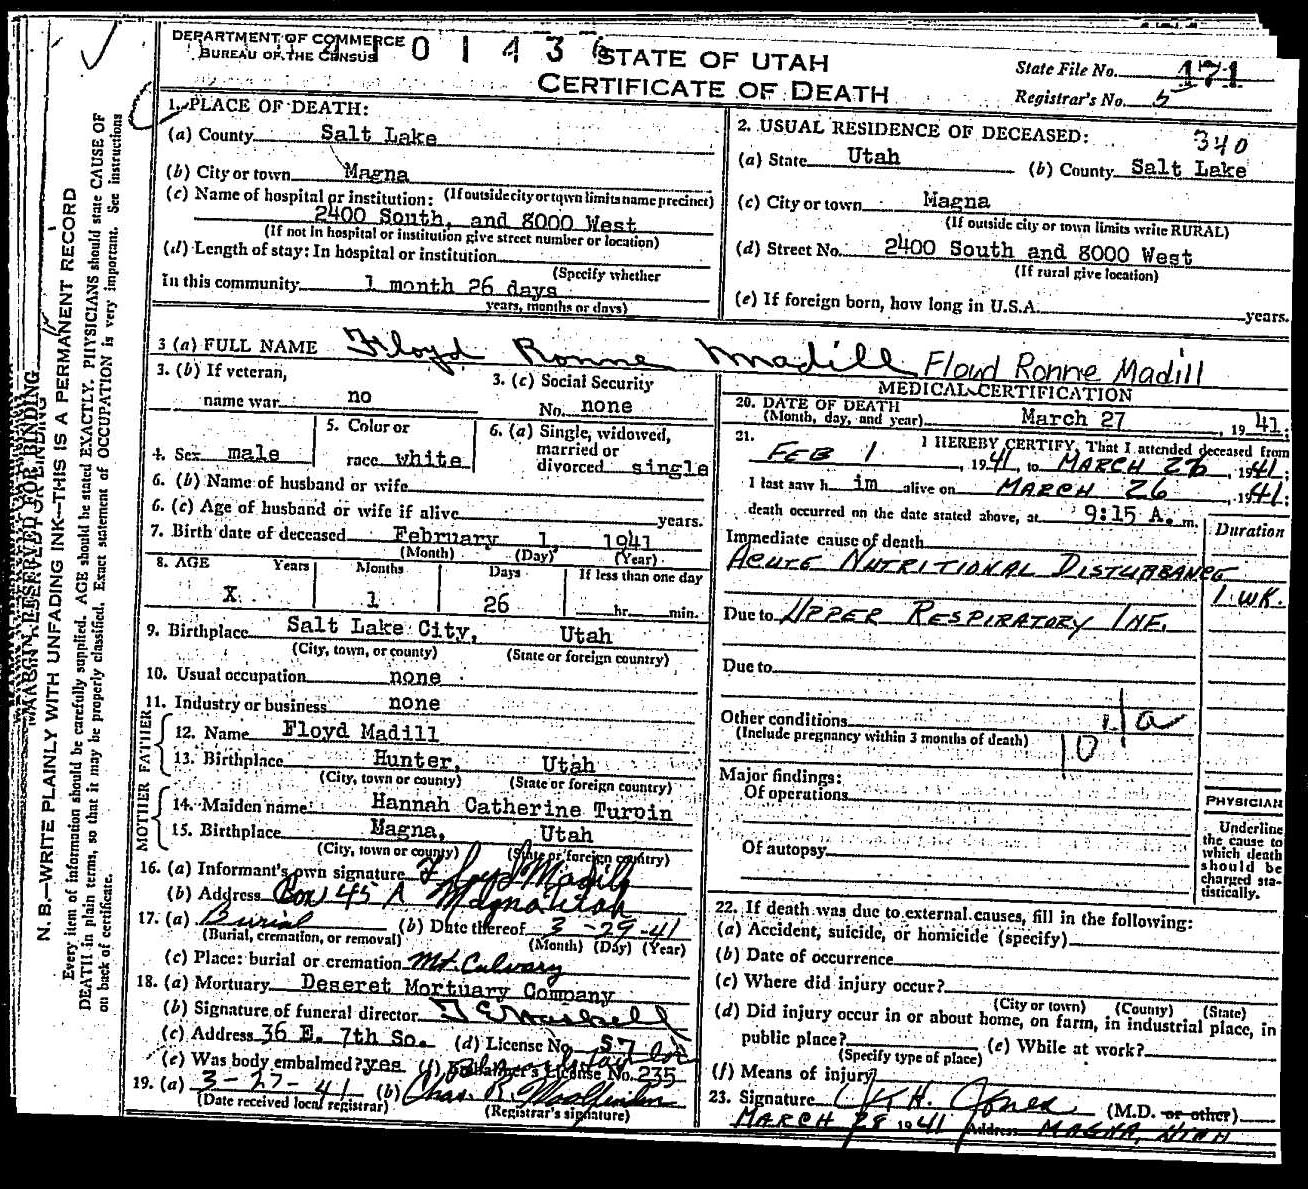 DEPARTMENT OF COMMERCE
BUREAU OF THE CENSUS
STATE OF UTAH
CERTIFICATE OF DEATH
State File No. 171
Registrar's No. 5
1. PLACE OF DEATH:
(a) County Salt Lake
(b) City or town Magna
(c) Name of hospital or institution: (If outside city or town limits name precinct)
2400 South, and 8000 West
(If not in hospital or institution give street number or location)
(d) Length of stay: In hospital or institution
(Specify whether
In this community 1 month 26 days
years, months or days)
2. USUAL RESIDENCE OF DECEASED: 340
(a) State Utah (b) County Salt Lake
(c) City or town Magna
(If outside city or town limits write RURAL)
(d) Street No. 2400 South and 8000 West
(If rural give location)
(e) If foreign born, how long in U.S.A. years.
3 (a) FULL NAME Floyd Ronne Madill Floyd Ronne Madill
3. (b) If veteran,
name war no
3. (c) Social Security
No. none
4. Sex male
5. Color or
race white
6. (a) Single, widowed,
married or
divorced single
6. (b) Name of husband or wife
6. (c) Age of husband or wife if alive years.
7. Birth date of deceased February 1, 1941
(Month) (Day) (Year)
8. AGE Years Months Days If less than one day
X 1 26 hr. min.
9. Birthplace Salt Lake City, Utah
(City, town, or county) (State or foreign country)
10. Usual occupation none
11. Industry or business none
FATHER
12. Name Floyd Madill
13. Birthplace Hunter, Utah
(City, town or county) (State or foreign country)
MOTHER
14. Maiden name: Hannah Catherine Turpin
15. Birthplace Magna, Utah
(City, town or county) (State or foreign country)
16. (a) Informant's own signature Floyd Madill
(b) Address Box 45 A Magna Utah
17. (a) Burial (b) Date thereof 3-29-41
(Burial, cremation, or removal) (Month) (Day) (Year)
(c) Place: burial or cremation Mt. Calvary
18. (a) Mortuary Deseret Mortuary Company
(b) Signature of funeral director
(c) Address 36 E. 7th So. (d) License No. 57
(e) Was body embalmed? yes (f) Embalmer's License No. 235
19. (a) 3-27-41 (b) Chas. R.
(Date received local registrar) (Registrar's signature)
MEDICAL CERTIFICATION
20. DATE OF DEATH
(Month, day, and year) March 27, 1941;
21. I HEREBY CERTIFY, That I attended deceased from
FEB 1, 1941, to MARCH 26, 1941;
I last saw him alive on MARCH 26, 1941;
death occurred on the date stated above, at 9:15 A. m.
Duration
Immediate cause of death
ACUTE NUTRITIONAL DISTURBANCE
1 WK.
Due to UPPER RESPIRATORY INF.
Due to
Other conditions
(Include pregnancy within 3 months of death)
Major findings:
Of operations
Of autopsy
PHYSICIAN
Underline
the cause to
which death
should be
charged sta-
tistically.
22. If death was due to external causes, fill in the following:
(a) Accident, suicide, or homicide (specify)
(b) Date of occurrence
(c) Where did injury occur?
(City or town) (County) (State)
(d) Did injury occur in or about home, on farm, in industrial place, in
public place? (e) While at work?
(Specify type of place)
(f) Means of injury
23. Signature H. Jones (M.D. or other)
MARCH 28 1941 Address MAGNA, UTAH
MARGIN RESERVED FOR BINDING
N. B.—WRITE PLAINLY WITH UNFADING INK—THIS IS A PERMANENT RECORD
Every item of information should be carefully supplied. AGE should be stated EXACTLY. PHYSICIANS should state CAUSE OF
DEATH in plain terms, so that it may be properly classified. Exact statement of OCCUPATION is very important. See instructions
on back of certificate.